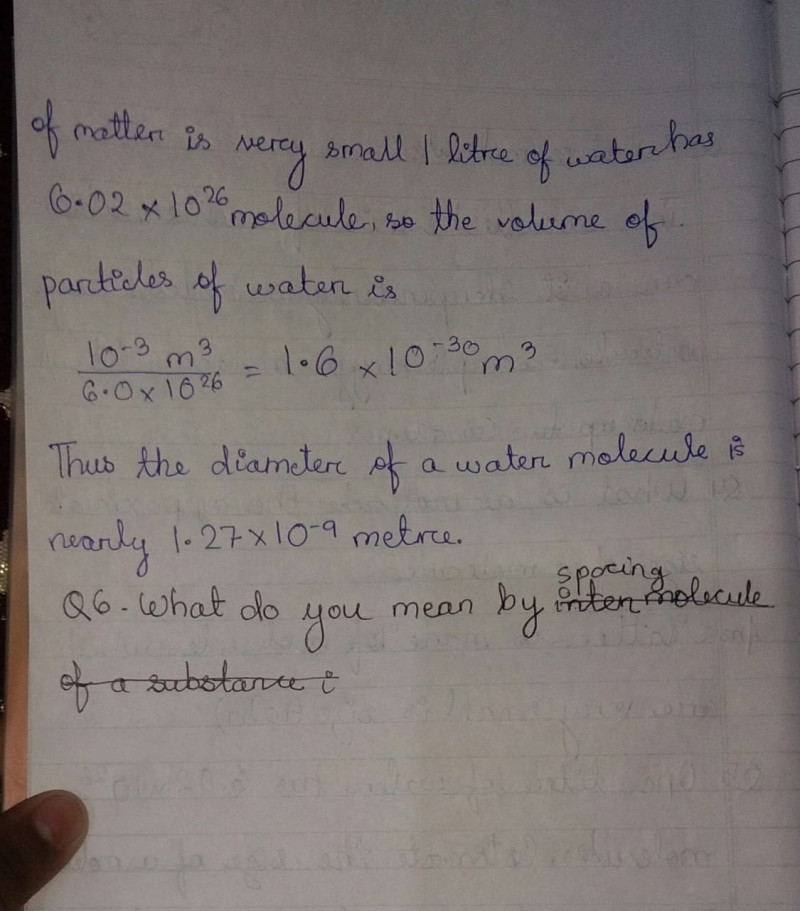 of matter is very small 1 litre of water has
6.02 × 10²⁶ molecule, so the volume of
particles of water is
10⁻³ m³ / 6.0 × 10²⁶ = 1.6 × 10⁻³⁰ m³
Thus the diameter of a water molecule is
nearly 1.27 × 10⁻⁹ metre.
spacing
Q6. What do you mean by inter molecule
of a substance i